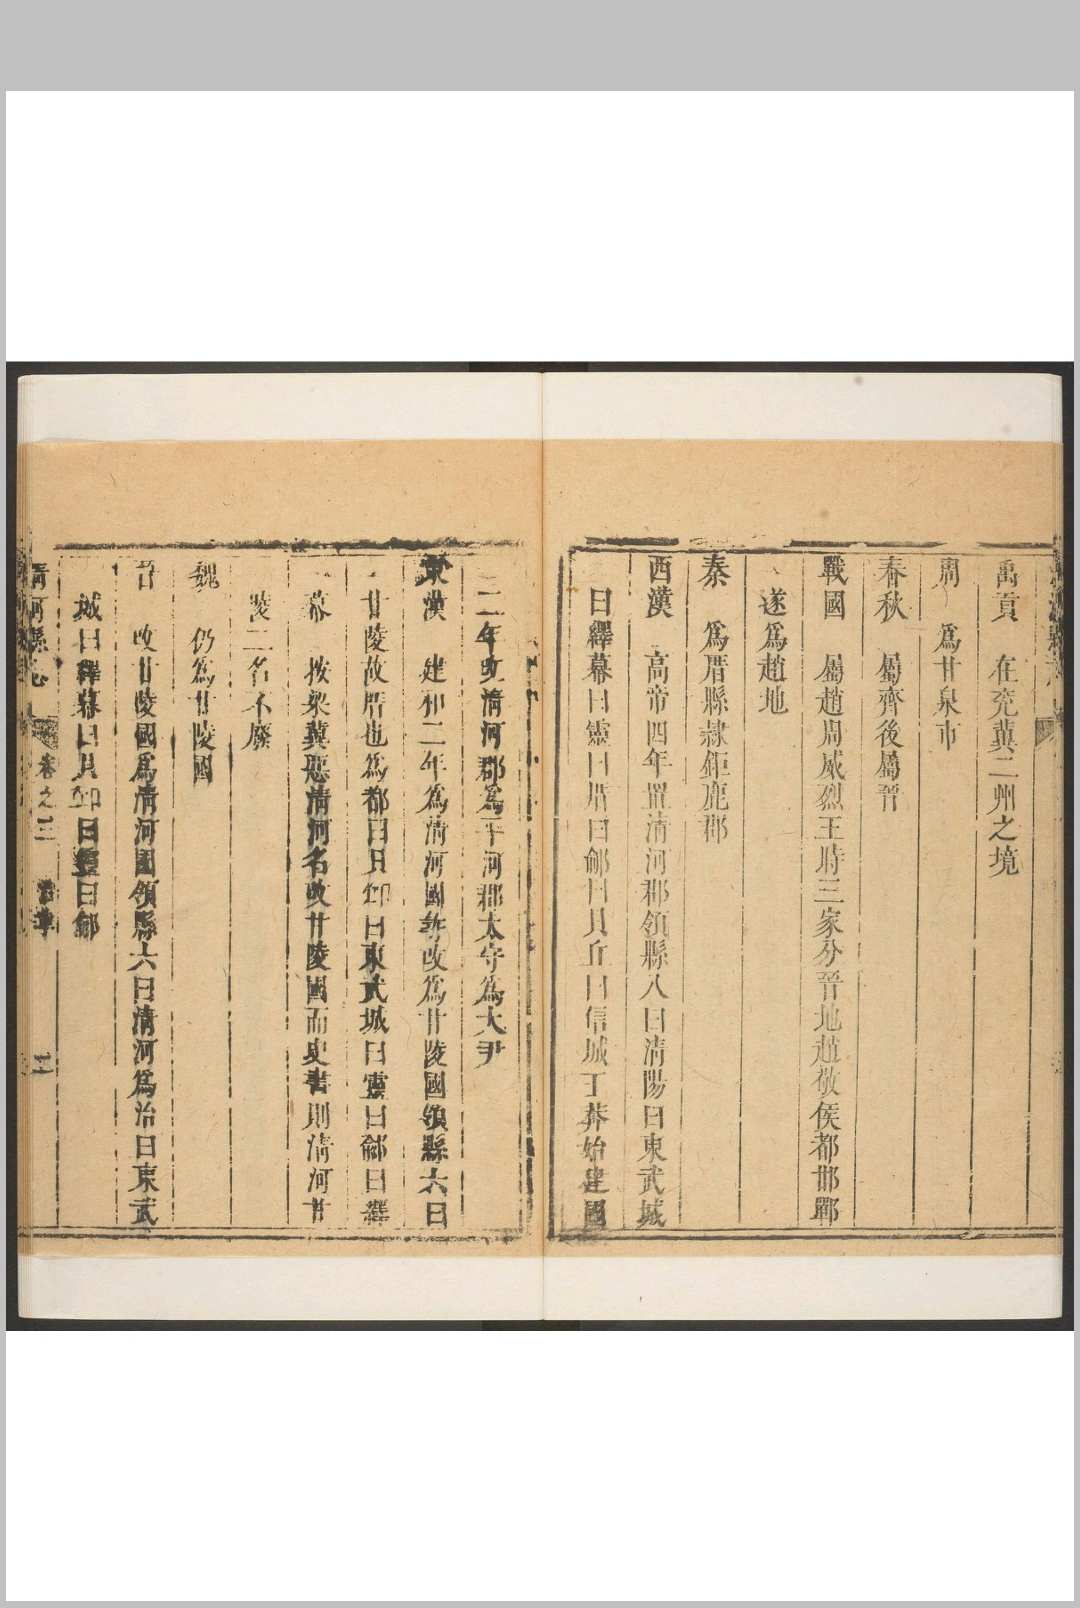 禹貢 在兖冀二州之境
周 爲甘泉市
春秋 屬齊後屬晉
戰國 屬趙周威烈王時三家分晉地趙敬侯都邯鄲
遂爲趙地
秦 爲厝縣隸鉅鹿郡
西漢 高帝四年置清河郡領縣八曰清陽曰東武城
曰繹幕曰靈曰厝曰鄃曰貝丘曰信城王莽始建國
二年改清河郡爲平河郡太守爲大尹
東漢 建和二年爲清河國改爲甘陵國領縣六曰
甘陵故厝也爲都曰貝丘曰東武城曰靈曰鄃曰繹
幕 按梁冀惡清河名改甘陵國而史書則清河甘
陵二名不廢
魏 仍爲甘陵國
晉 改甘陵國爲清河國領縣六曰清河爲治曰東武
城曰繹幕曰貝丘曰靈曰鄃
清河縣志 卷之三 二